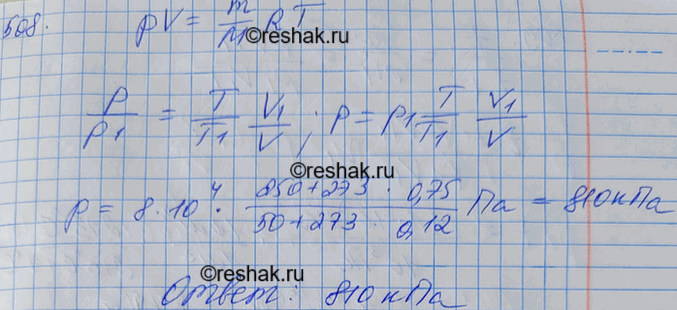 508. pV = m/M RT
©reshak.ru
p/p1 = T/T1 V1/V ; p = p1 T/T1 V1/V
©reshak.ru
p = 8·10⁴ · (250+273 · 0,75)/(50+273 · 0,12) Па = 810 кПа
©reshak.ru
Ответ: 810 кПа